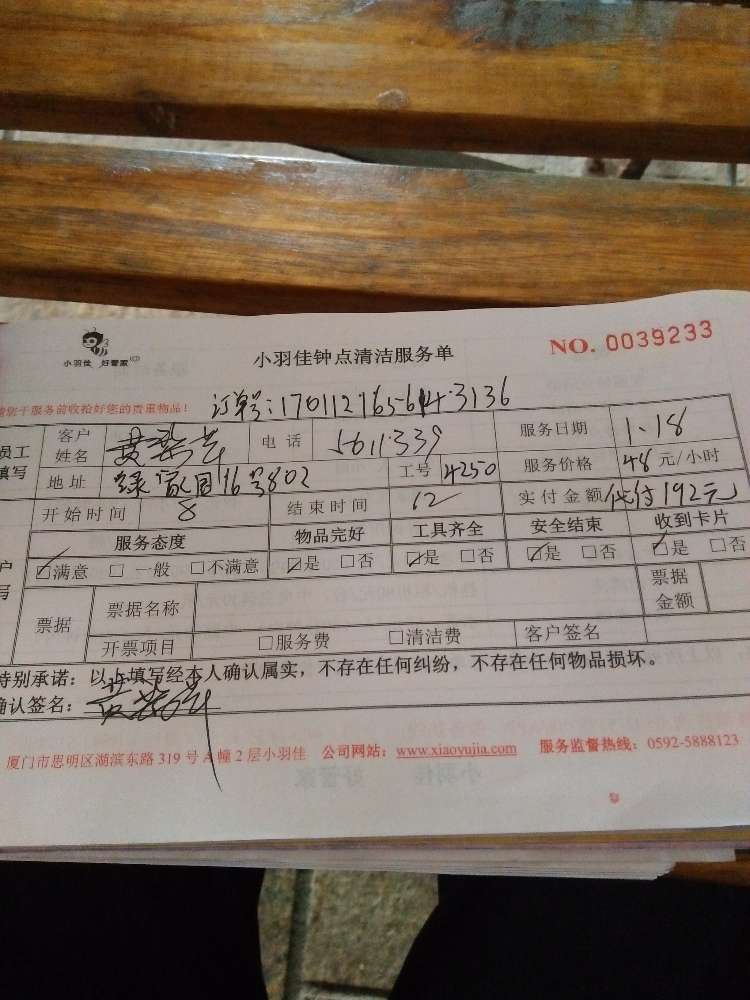 小羽佳 好管家
小羽佳钟点清洁服务单
NO. 0039233
您于服务前收拾好您的贵重物品!
订单号:
员工填写 客户姓名 黄 电话 5611339 服务日期 1.18
地址 16号802 工号 4250 服务价格 48 元/小时
开始时间 8 结束时间 12 实付金额 代付192元
服务态度 物品完好 工具齐全 安全结束 收到卡片
☑满意 □ 一般 □不满意 ☑是 □否 ☑是 □否 ☑是 □否 ☑是 □否
票据 票据名称 票据金额
开票项目 □服务费 □清洁费 客户签名
特别承诺:以上填写经本人确认属实,不存在任何纠纷,不存在任何物品损坏。
确认签名:
厦门市思明区湖滨东路 319 号 A 幢 2 层小羽佳 公司网站:www.xiaoyujia.com 服务监督热线:0592-5888123